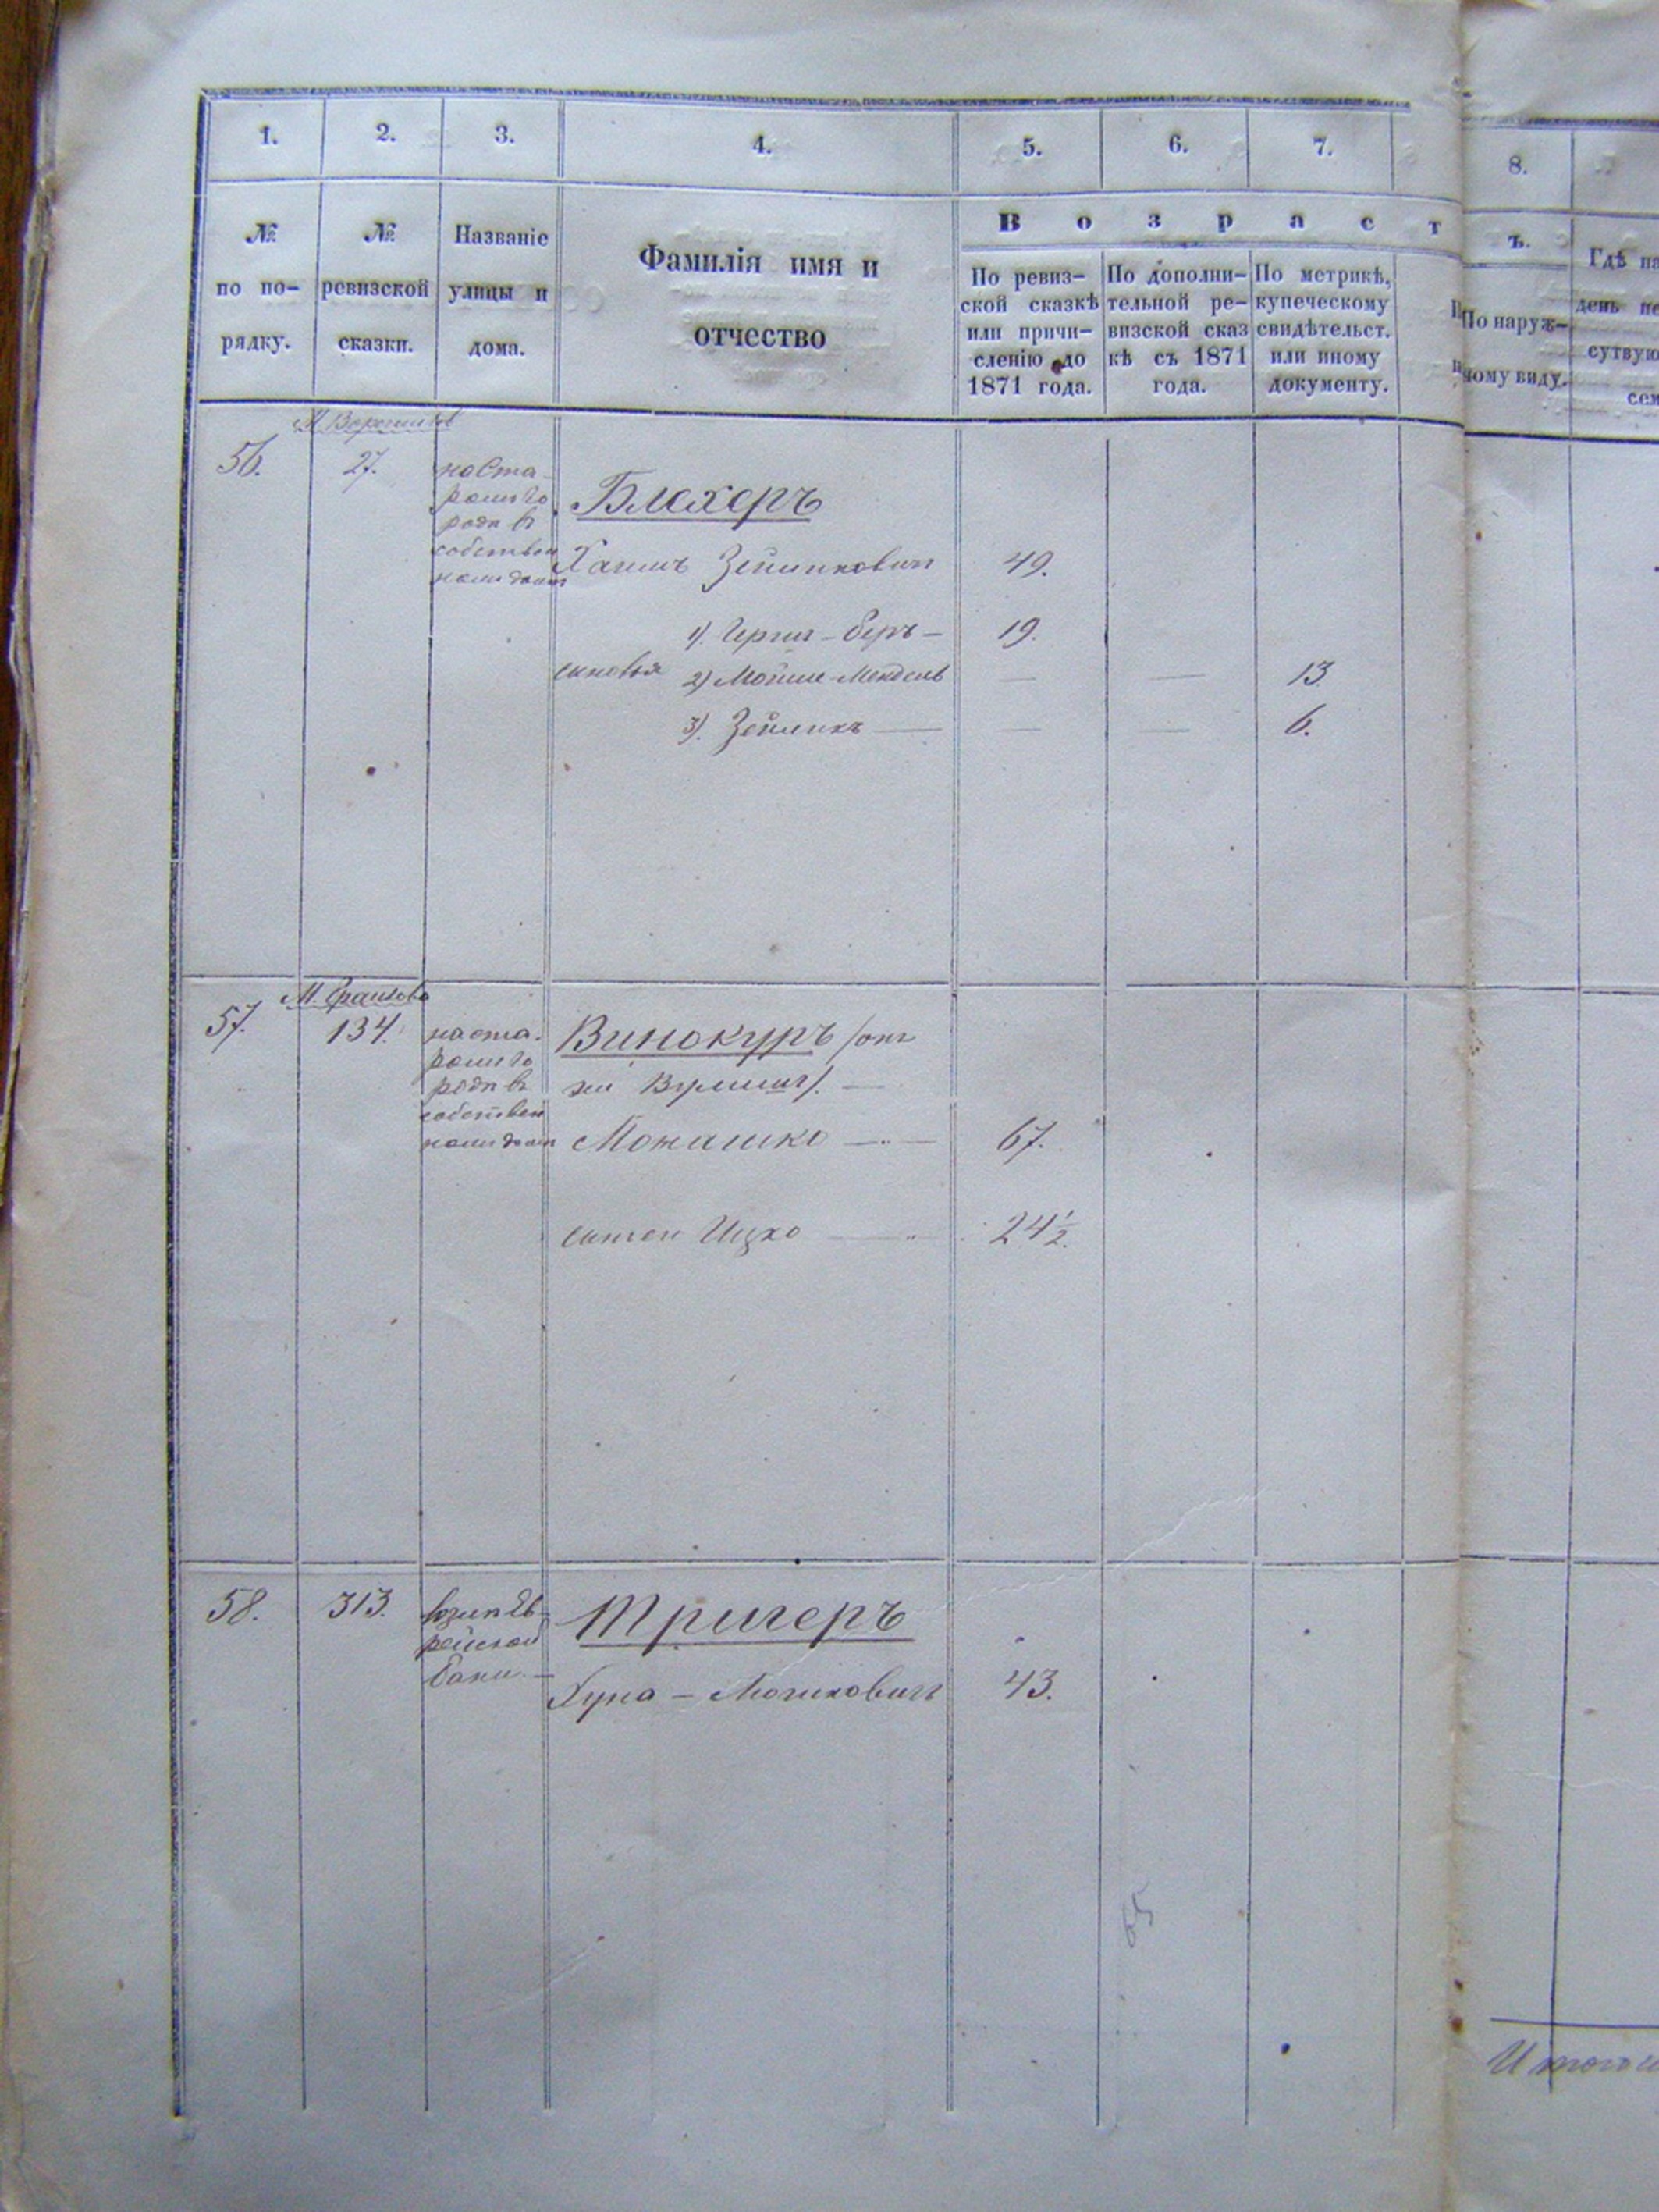 1. 2. 3. 4. 5. 6. 7. 8.
№ по по- рядку.
№ ревизской сказки.
Названіе улицы и дома.
Фамилія имя и отчество
В о з р а с т ъ.
По ревиз-
ской сказкѣ
или причи-
сленію до
1871 года.
По дополни-
тельной ре-
визской сказ
кѣ съ 1871
года.
По метрикѣ,
купеческому
свидѣтельст.
или иному
документу.
По наруж-
ному виду.
Гдѣ на
день не
сутвую
сем
56. 27.
на Ста-
ромъ Го
родѣ въ
собствен
номъ домѣ
Блехеръ
Хаимъ Зейликовичъ 49.
1). Герш-Беръ — 19.
сыновья 2) Мойше-Мендель — — 13.
3). Зейликъ — — — 6.
57. 134.
на ста-
ромъ Го
родѣ въ
собствен
номъ домѣ
Винокуръ /онъ
же
Монашко — 67.
Ицко — 24½.
58. 313.
рейской
бани. —
Тригеръ
43.